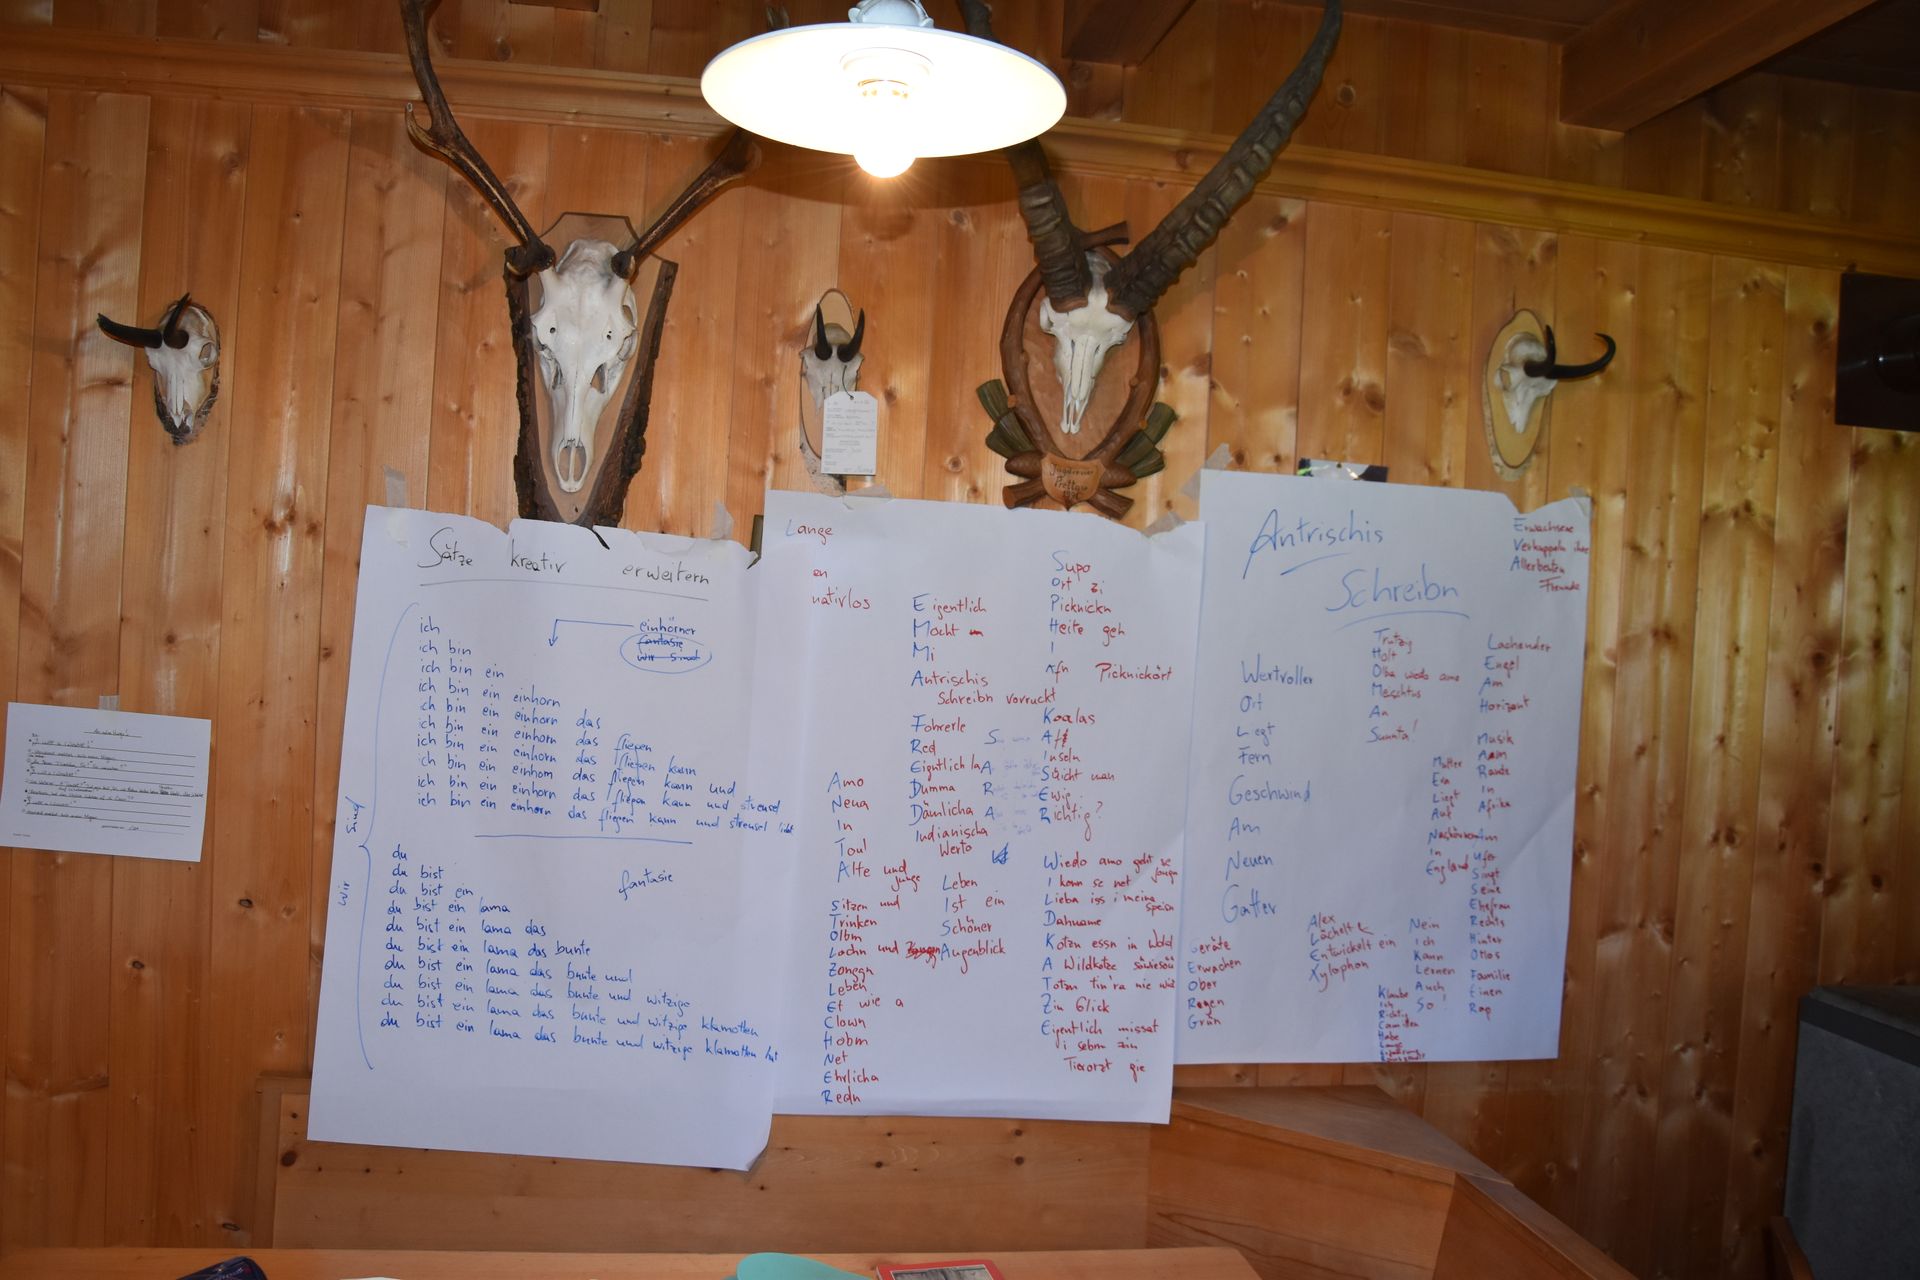 Jagdrevier
Prettau
Sätze kreativ erweitern
einhörner
fantasie
wir sind
ich
ich bin
ich bin ein
ich bin ein einhorn
ich bin ein einhorn das
ich bin ein einhorn das fliegen
ich bin ein einhorn das fliegen kann
ich bin ein einhorn das fliegen kann und
ich bin ein einhorn das fliegen kann und streusel
ich bin ein einhorn das fliegen kann und streusel liebt
wir sind
fantasie
du
du bist
du bist ein
du bist ein lama
du bist ein lama das
du bist ein lama das bunte
du bist ein lama das bunte und
du bist ein lama das bunte und witzige
du bist ein lama das bunte und witzige klamotten
du bist ein lama das bunte und witzige klamotten hat
Lange
en
nativlos
Amo
Neua
In
Toul
Alte und
junge
Sitzen und
Trinken
Olbm
Lochn und
Zonegn
Leben
Et wie a
Clown
Hobm
Net
Ehrlicha
Redn
Eigentlich
Mocht
Mi
Antrischis
Schreibn vorruckt
Fohrerle
Red
Eigntlich la
Dumma
Dämlicha
Indianischa
Werto
Leben
Ist ein
Schöner
Augenblick
Supo
Ort zi
Picknickn
Heite geh
I
Afn Picknickört
Koalas
Auf
Inseln
Sticht man
Ewig
Richtig?
Wiedo amo geht se
I konn se net
Lieba iss i meina
Speisn
Dahuame
Kotzn essn in Wold
A Wildkotze sowiesou
Totzn tin'ra nie wöi
Zin Glick
Eigentlich missat
i sebm zin
Tierorzt gie
Antrischis
Schreibn
Erwachsene
Verkuppeln ihre
Allerbesten
Freunde
Wertvoller
Ort
Liegt
Fern
Geschwind
Am
Neuen
Gatter
Trutzig
Holt
Olba wiedo amo
An
Sunnta!
Lachender
Engel
Am
Horizont
Mutter
Eva
Liegt
Auf
in
England
Musik
Raute
In
Afrika
Am
Ufer
Singt
Seine
Ehefrau
Rechts
Hinter
Ottos
Familie
Einen
Rap
Geräte
Erwachen
Ober
Regen
Grün
Alex
Lächelt
Entwickelt ein
Xylophon
Nein
Ich
Kann
Lernen
Auch
So!
Klaube
Ich
Richtig
Camillen
Habe
Lange